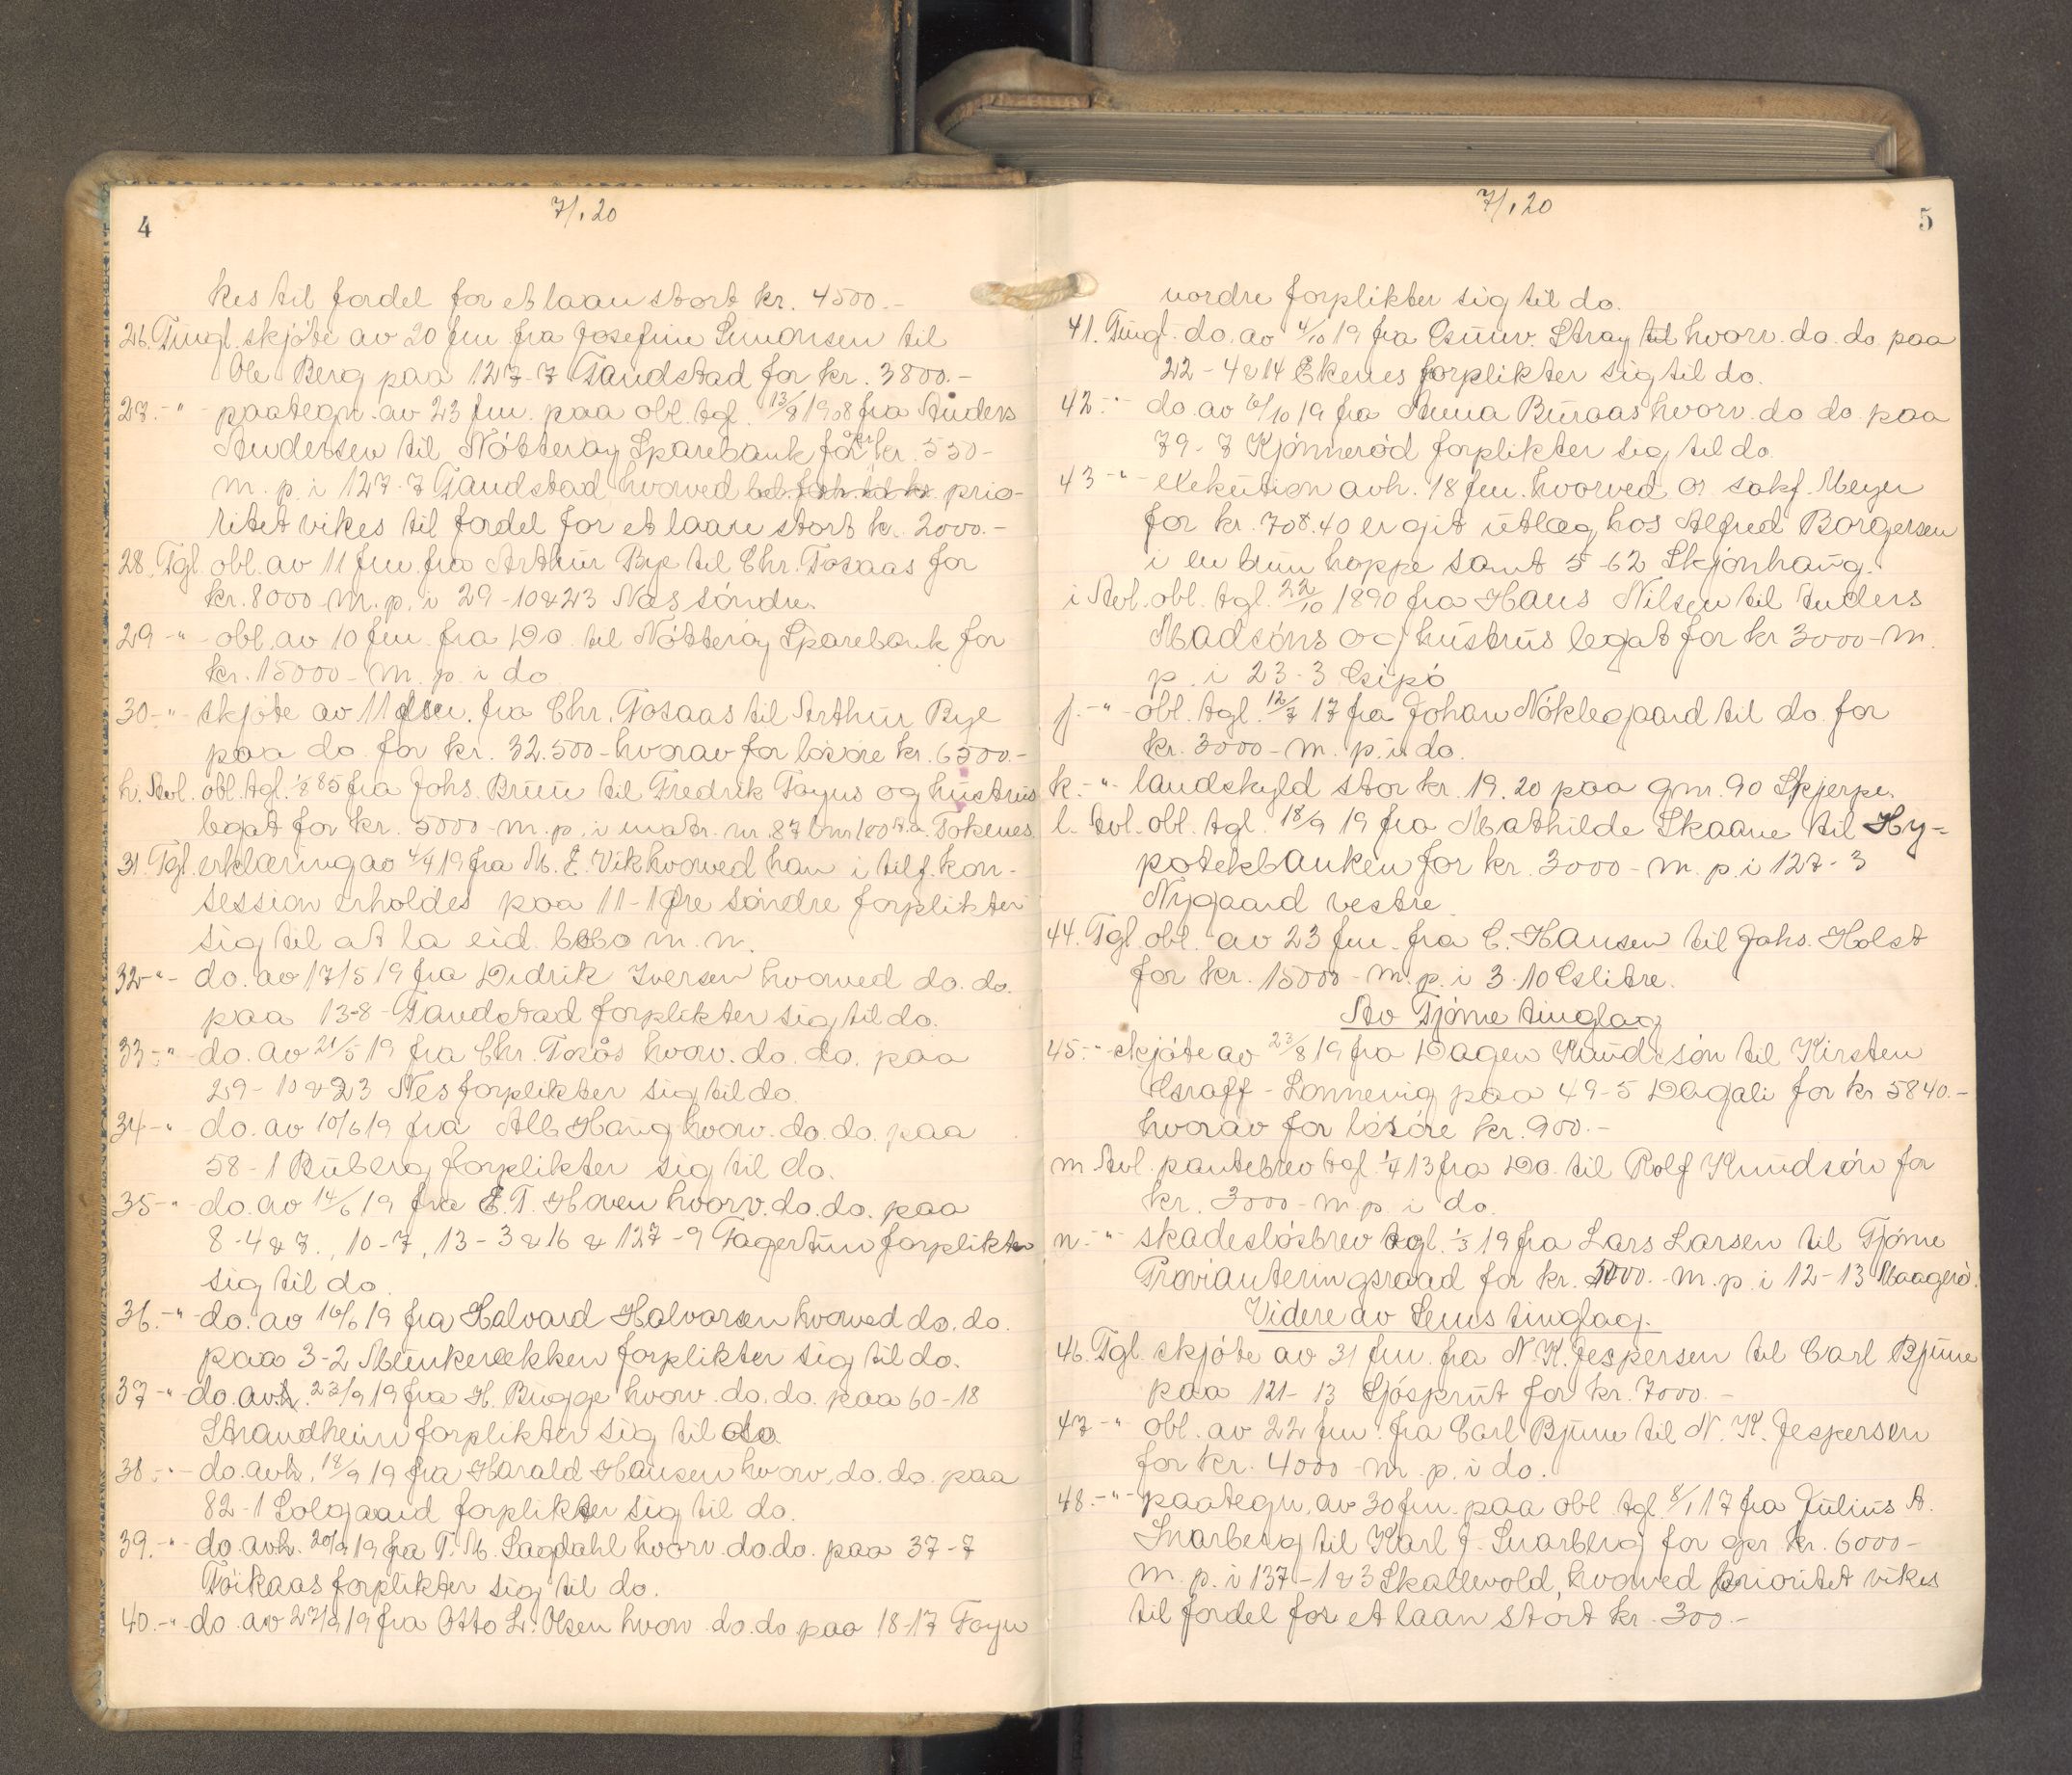 4
7/1 20
kes til fordel for et laan stort kr. 4500.-
26. Tingl. skjöte av 20 fm fra Josefine Simonsen til
Ole Berg paa 127-7 Tandstad for kr. 3800.-
27.-"- paategn. av 23 fm. paa obl. tgl. 13/8 1908 fra Anders
Andersen til Nötteröy Sparebank for kr. 550-
m. p. i 127-7 Tandstad hvorved prio-
ritet vikes til fordel for et laan stort kr. 2000.-
28. Tgl. obl. av 11 fm. fra Arthur Bye til Chr. Tosaas for
kr. 8000 m. p. i 29-10 & 23 Nes söndre.
29 -"- obl. av 10 fm. fra Do. til Nötteröy Sparebank for
kr. 15000- m. p. i do
30-"- skjöte av 11 fm. fra Chr. Tosaas til Arthur Bye
paa do. for kr. 32.500- hvorav for lösöre kr. 6500.-
h. Avl. obl. tgl. 1/8 85 fra Johs. Bruu til Fredrik Foyns og hustrus
legat for kr. 5000- m. p. i matr. nr. 87 bnr 100 Tokenes.
31. Tgl. erklæring av 4/4 19 fra M. E. Vik hvorved han i tilf. kon-
session erholdes paa 11-1 Øre söndre forplikter
sig til at la eid. bebo m. m.
32-"- do. av 17/5 19 fra Didrik Iversen hvorved do. do.
paa 13-8 Tandstad forplikter sig til do.
33-"- do. av 21/5 19 fra Chr. Tosås hvorv. do. do. paa
29-10 & 23 Nes forplikter sig til do.
34-"- do. av 10/6 19 fra Alb. Haug hvorv. do. do. paa
58-1 Buberg forplikter sig til do.
35-"- do. av 14/6 19 fra E. T. Hoven hvorv. do. do. paa
8-4 & 7., 10-7, 13-3 & 16 & 127-9 Fagertun forplikter
sig til do.
36.-"- do. av 16/6 19 fra Halvard Halvorsen hvorved do. do.
paa 3-2 Munkerekken forplikter sig til do.
37-"- do. avh. 23/9 19 fra H. Bugge hvorv. do. do. paa 60-18
Strandheim forplikter sig til do.
38.-"- do. avh. 18/9 19 fra Harald Hansen hvorv. do. do. paa
82-1 Solgaard forplikter sig til do.
39.-"- do. avh. 20/9 19 fra T. M. Sagdahl hvorv. do. do. paa 37-7
Töikaas forplikter sig til do.
40.-"- do. av 27/9 19 fra Otto L. Olsen hvorv. do. do paa 18-17 Foyn
7/1 20
5
nordre forplikter sig til do.
41. Tingl. do. av 4/10 19 fra Gunnv. Stray til hvorv. do. do. paa
22-4 & 14 Ekenes forplikter sig til do.
42.-"- do. av 6/10 19 fra Anna Buraas hvorv. do do. paa
79-7 Kjönneröd forplikter sig til do.
43-"- exekution avh. 18 fm. hvorved or. sakf. Meyer
for kr. 708.40 er git utlæg hos Alfred Borgersen
i en brun hoppe samt 5-62 Skjönhaug.
i Avl. obl. tgl. 22/10 1890 fra Hans Nilsen til Anders
Madsöns og hustrus legat for kr 3000- m.
p. i 23-3 Gipö
j.-"- obl. tgl. 12/7 17 fra Johan Nöklegaard til do. for
kr. 3000- m. p. i do.
k.-"- landskyld stor kr. 19.20 paa gnr. 90 Skjerpe.
l. Avl. obl. tgl. 18/9 19 fra Mathilde Skaane til Hy-
potekbanken for kr. 3000- m. p. i 127-3
Nygaard vestre.
44. Tgl. obl. av 23 fm. fra C. Hansen til Johs. Holst
for kr. 15000- m. p. i 3-10 Gslitre.
Av Tjöme tinglag
45.-"- skjöte av 23/8 19 fra Dagen Knudsön til Kirsten
Graff-Lonnevig paa 49-5 Dagali for kr. 5840.-
hvorav for lösöre kr. 900.-
m. Avl. pantebrev tgl. 1/4 13 fra Do. til Rolf Knudsön for
kr. 3000- m. p. i do.
n.-"- skadeslösbrev tgl. 1/3 19 fra Lars Larsen til Tjöme
Provianteringsraad for kr. 5000.- m. p. i 12-13 Maagerö.
Videre av Sems tinglag.
46. Tgl. skjöte av 31 fm. fra N. K. Jespersen til Carl Bjune
paa 121-13 Sjösprut for kr. 7000.-
47-"- obl. av 22 fm. fra Carl Bjune til N. K. Jespersen
for kr. 4000- m. p. i do.
48.-"- paategn. av 30 fm. paa obl. tgl. 8/1 17 fra Julius A.
Snarberg til Karl J. Snarberg for opr. kr. 6000-
m. p. i 137-1 & 3 Skallevold, hvorved prioritet vikes
til fordel for et laan stort kr. 300.-